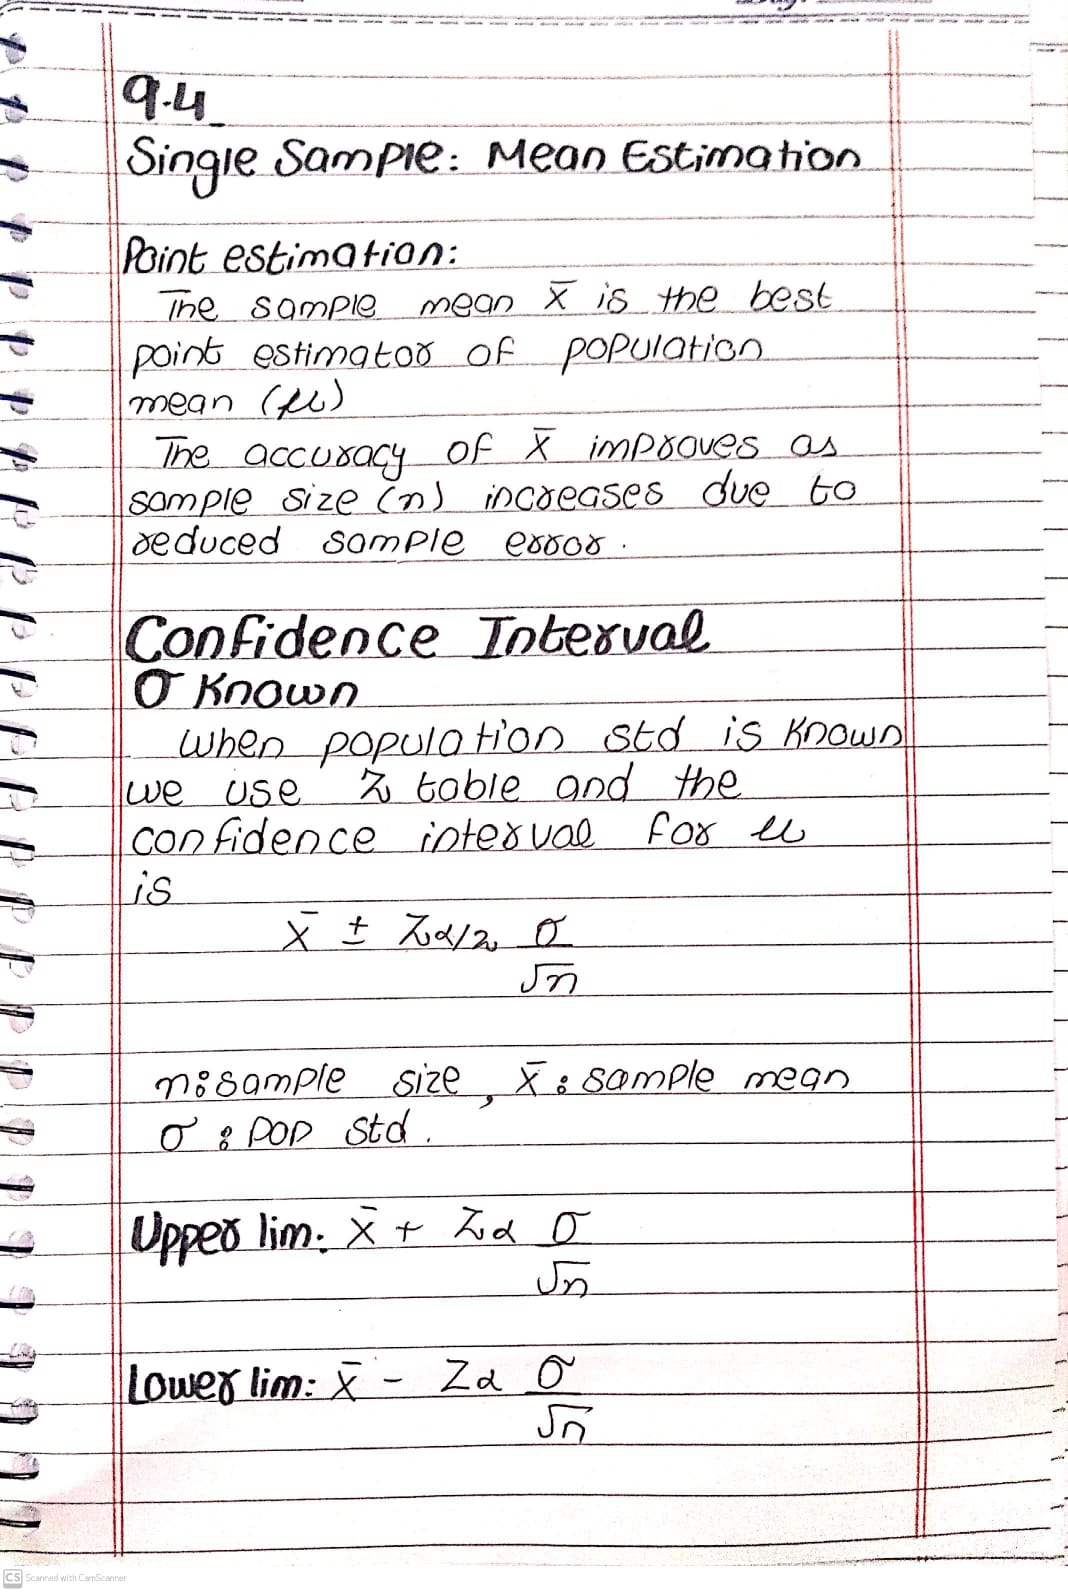 9.4
Single Sample: Mean Estimation
Point estimation:
The sample mean x̄ is the best
point estimator of population
mean (μ)
The accuracy of x̄ improves as
sample size (n) increases due to
reduced sample error.
Confidence Interval
σ Known
When population std is known
we use Z table and the
confidence interval for μ
is
x̄ ± Zα/2 σ/√n
n: sample size, x̄: sample mean
σ: pop std.
Upper lim: x̄ + Zα σ/√n
Lower lim: x̄ - Zα σ/√n
CS Scanned with CamScanner